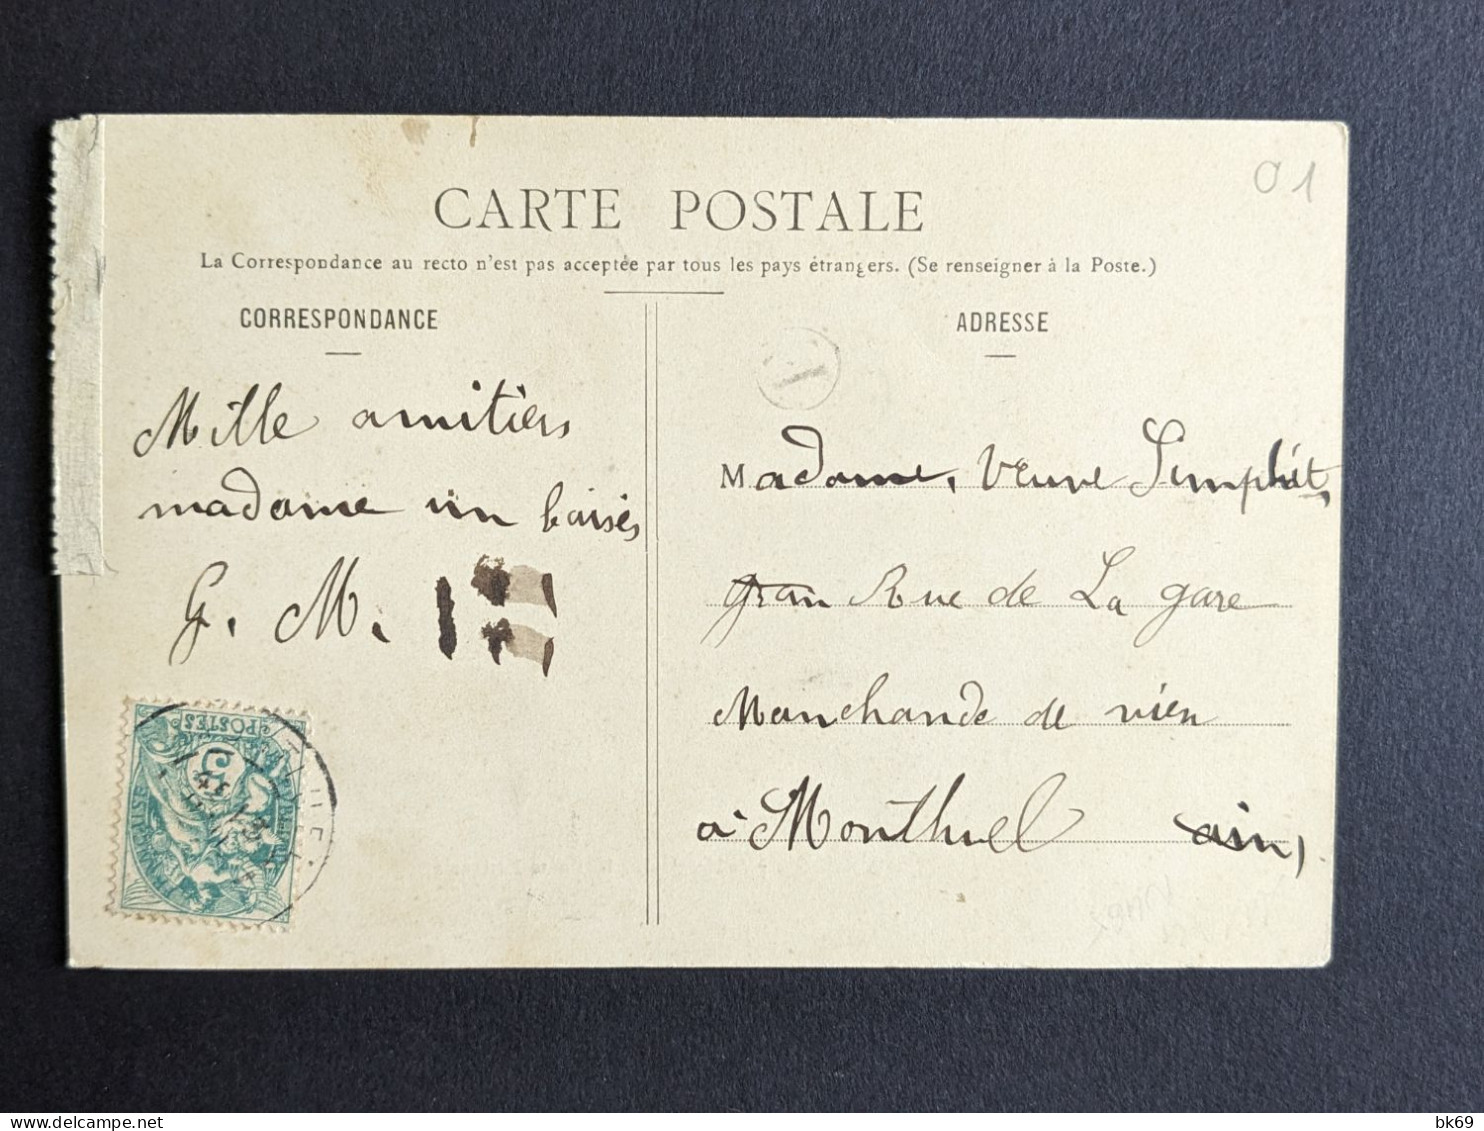 01
CARTE POSTALE
La Correspondance au recto n'est pas acceptée par tous les pays étrangers. (Se renseigner à la Poste.)
CORRESPONDANCE
Mille amitiers
madame un baisés
G. M.
POSTES
5
ADRESSE
1
Madame, Veuve
gran Rue de La gare
Marchande de vien
a Monthuel ain,
delcampe.net
bk69